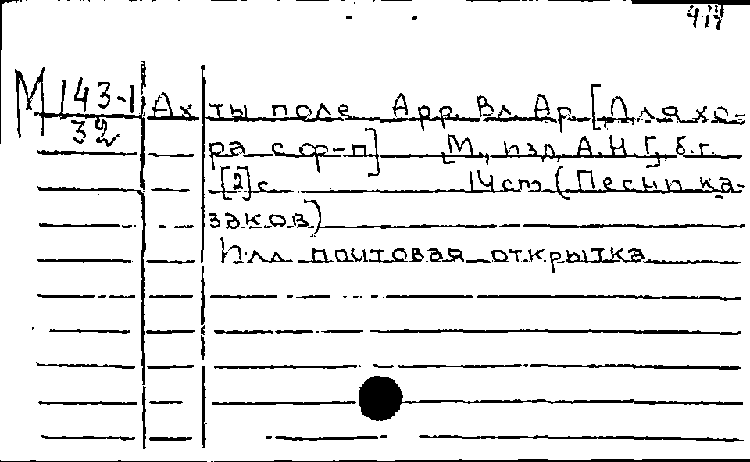 М 143-1 Ах ты поле. Арр. Вл. Ар [Для хо-
32 ра с ф-п] [М., изд. А.Н.], б.г.
[2] с. 14 см (Песни ка-
заков)
Илл. почтовая открытка